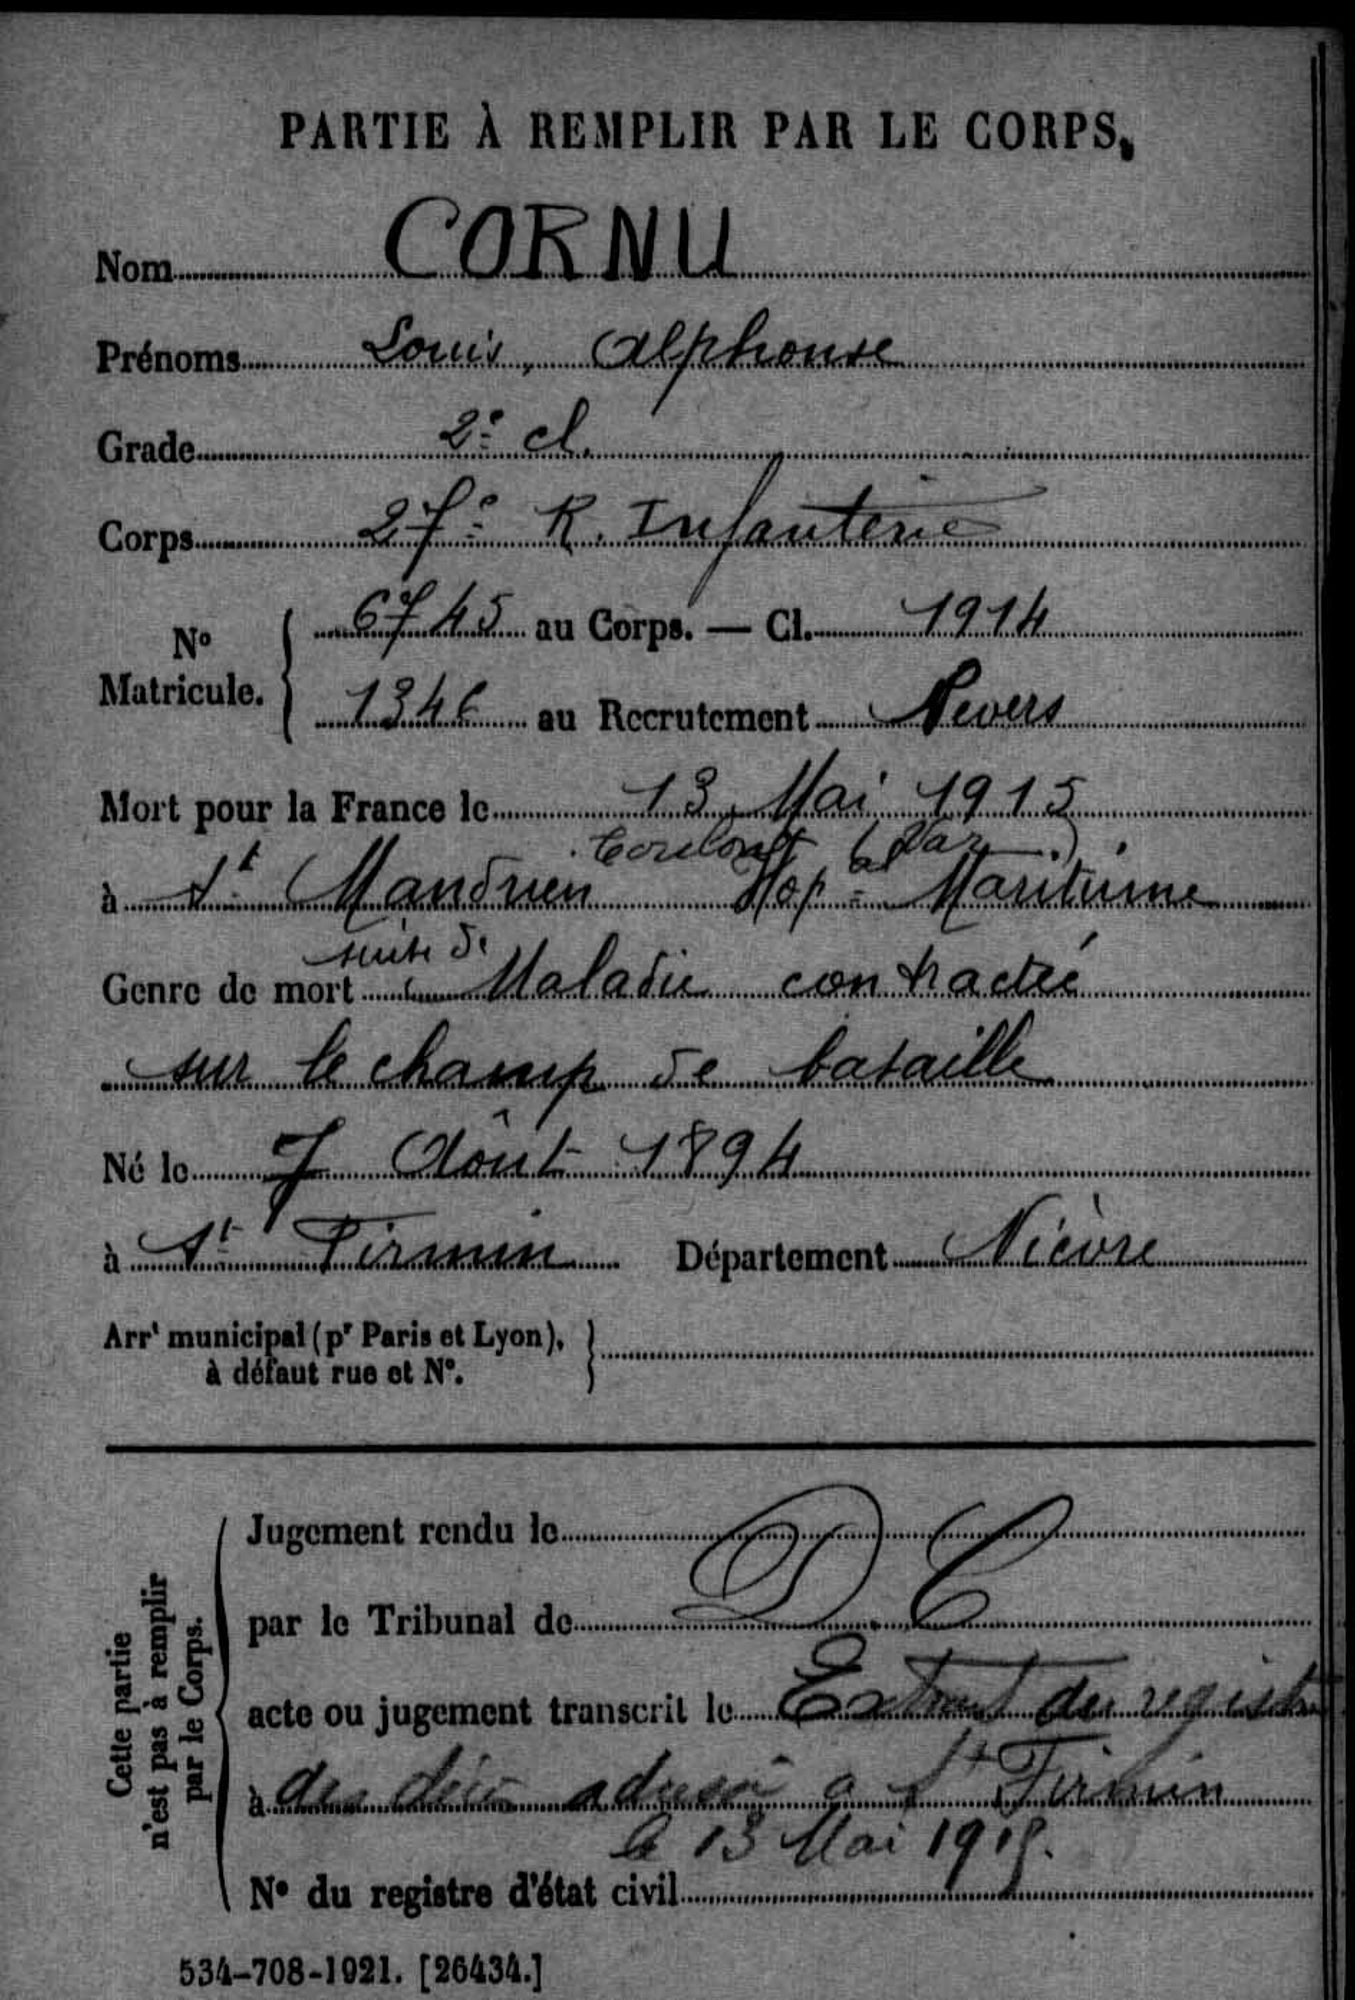 PARTIE À REMPLIR PAR LE CORPS.
Nom CORNU
Prénoms Louis, Alphonse
Grade 2e cl.
Corps 27e R. Infanterie
No Matricule. { 6745 au Corps. — Cl. 1914
1346 au Recrutement Nevers
Mort pour la France le 13 Mai 1915
Toulon (Var)
à St Mandrien Hopal Maritime
suite de
Genre de mort Maladie contractée
sur le champ de bataille
Né le 7 Aôut 1894
à St Firmin Département Nièvre
Arrt municipal (pr Paris et Lyon), }
à défaut rue et No.
Cette partie
n'est pas à remplir
par le Corps.
Jugement rendu le
par le Tribunal de D.C
acte ou jugement transcrit le Extrait du registre
à des décès adressé a St Firmin
le 13 Mai 1915.
No du registre d'état civil
534-708-1921. [26434.]